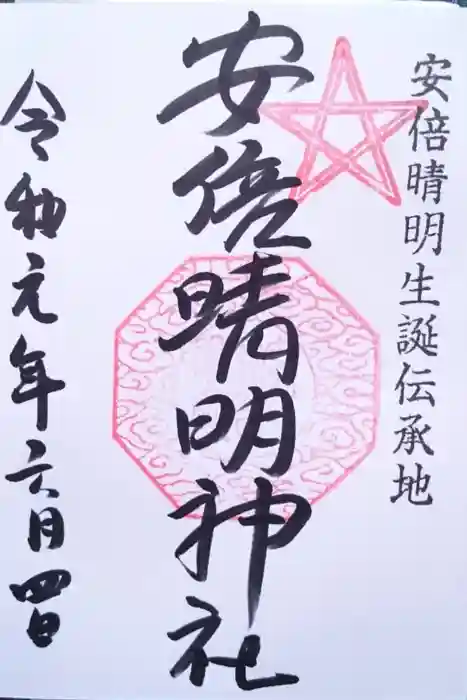 安倍晴明生誕伝承地
安倍晴明神社
令和元年六月四日